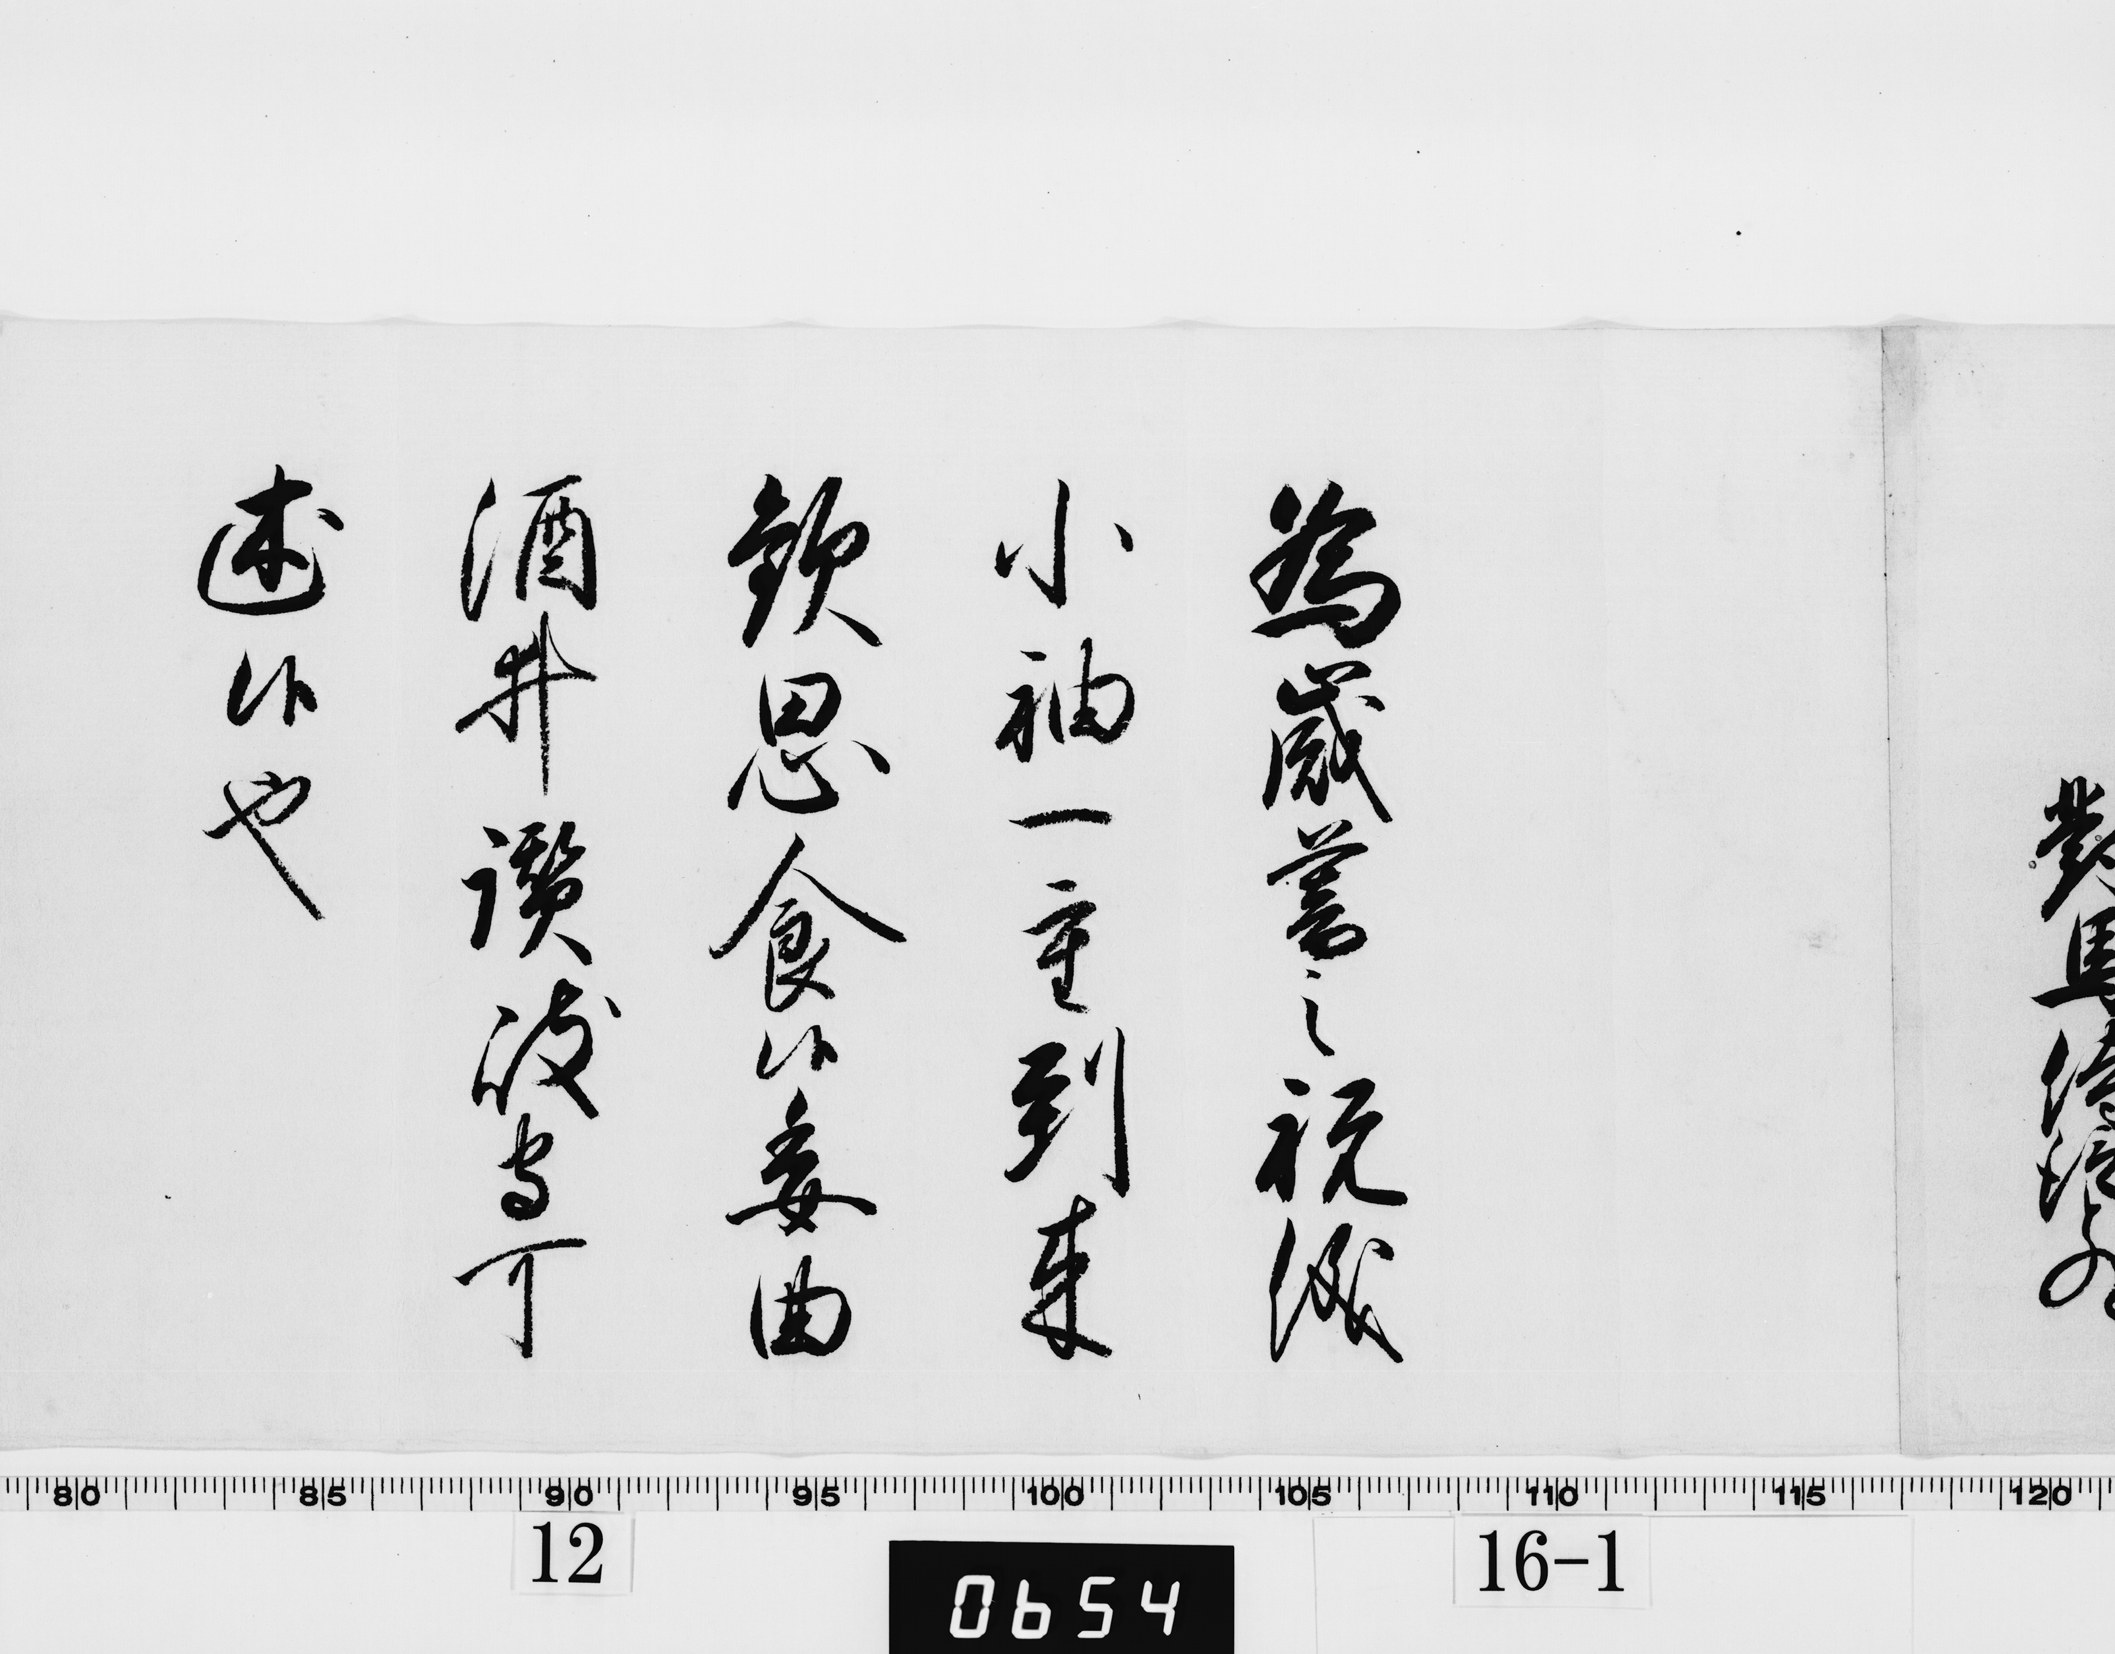 為歳暮之祝儀
小袖一重到来
欣思食候委曲
酒井讃岐守可
述候也
對馬侍従
80 85 90 95 100 105 110 115 120
12
16-1
0654